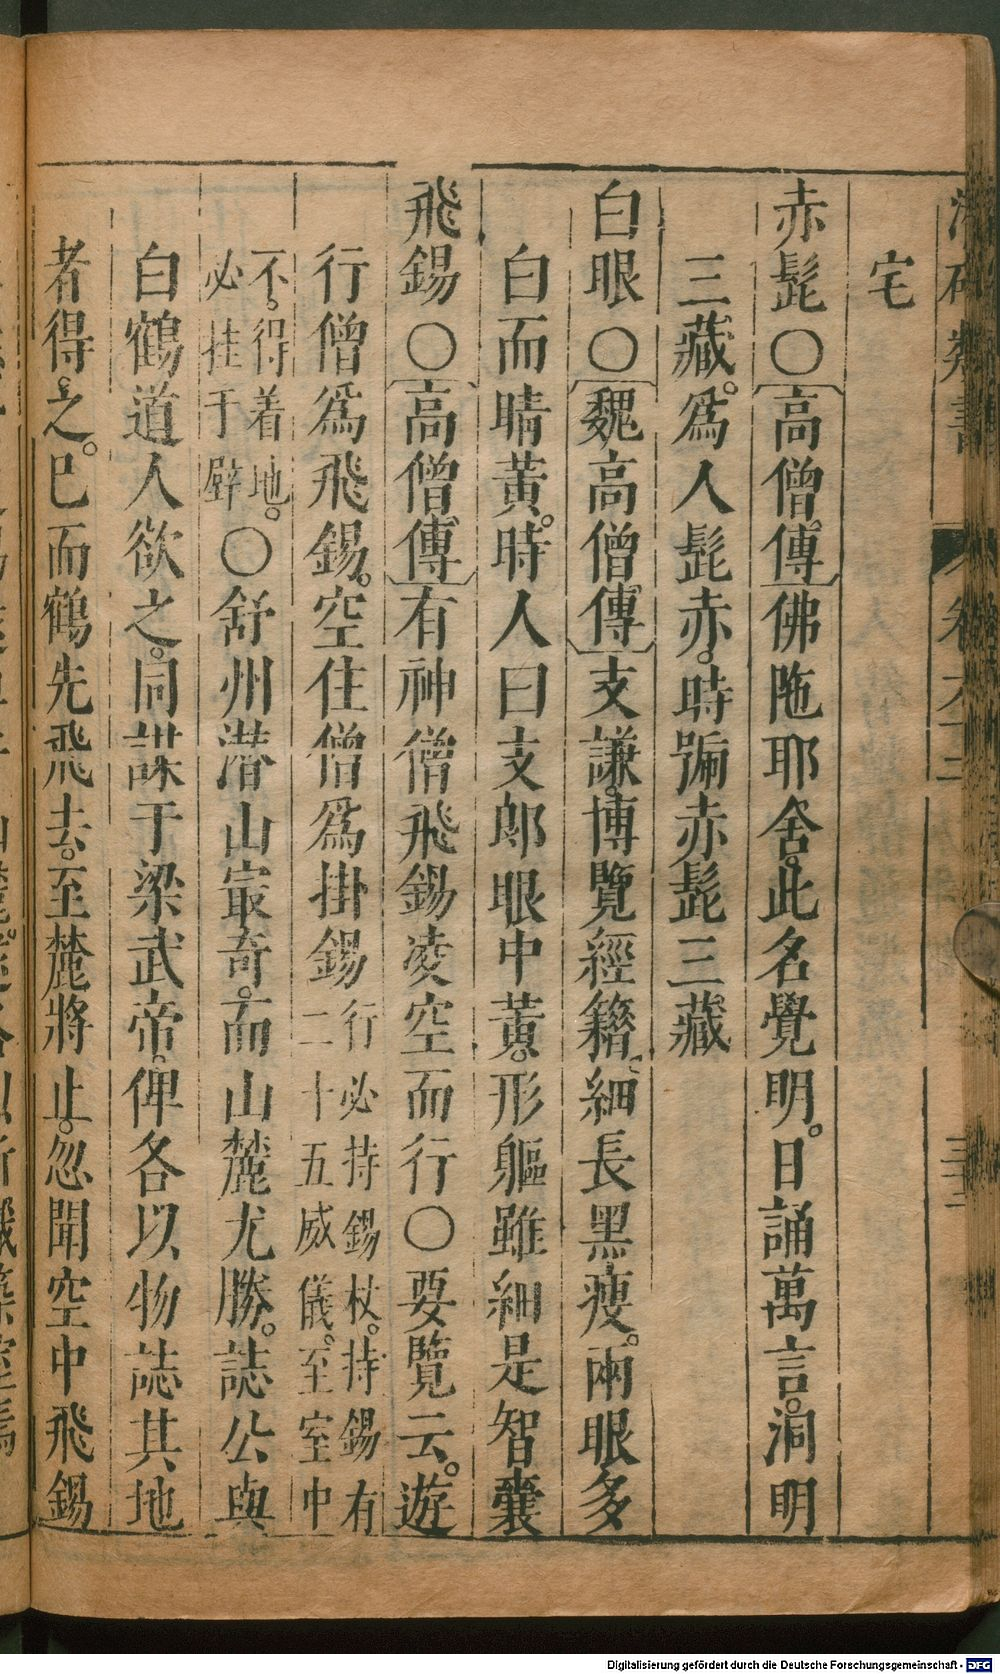 宅
赤髭○高僧傳佛陁耶舍。此名覺明。日誦萬言。洞明
三藏。爲人髭赤。時號赤髭三藏
白眼○魏高僧傳支謙。博覽經籍。細長黑瘦。兩眼多
白而睛黃。時人曰支郎眼中黃。形軀雖細是智囊
飛錫○高僧傳有神僧飛錫凌空而行○要覽云。遊
行僧爲飛錫。空住僧爲掛錫行必持錫杖。持錫有
二十五威儀。至室中
不。得着地。
必挂于壁○舒州潜山㝡奇。而山麓尤勝。誌公與
白鶴道人欲之。同謀于梁武帝。俾各以物誌其地
者得之。已而鶴先飛去。至麓將止。忽聞空中飛錫
Digitalisierung gefördert durch die Deutsche Forschungsgemeinschaft - DFG